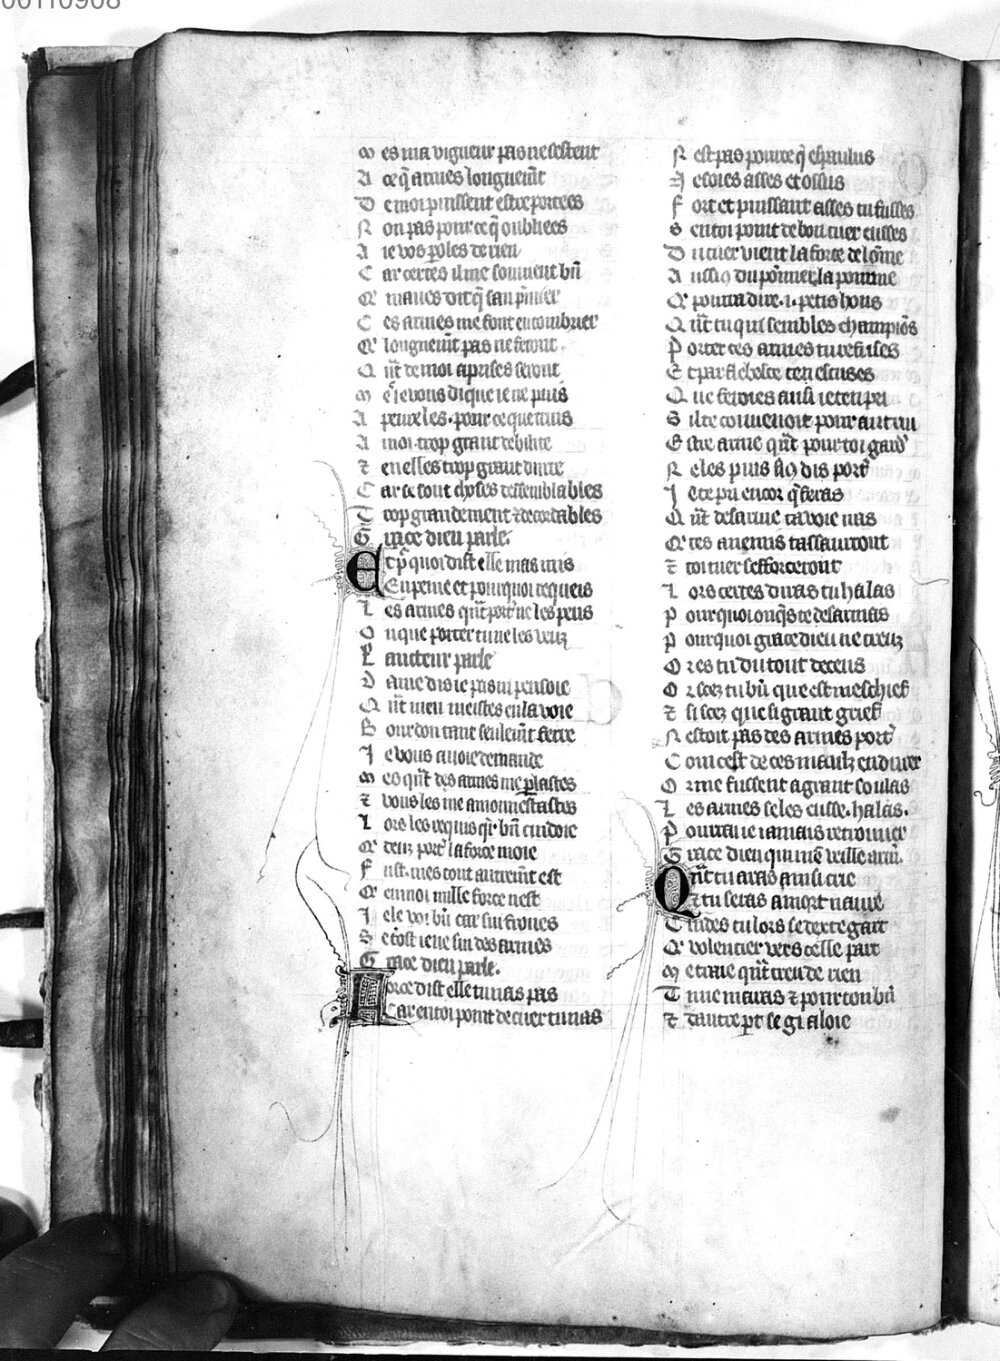 00110908
M es ma vigueur pas ne sestent
A ce q̃ armes longuem̃t
D e moi puissent estre portees
N on pas pour ce q̃ oubliees
A ie vos poles de rien
C ar certes il me souvient bñ
Q̃ maues dit q̃ san p̃mier
C es armes me font encombrier
Q̃ longuem̃t pas ne feront
Q ñt de moi aprises seront
M e ie vous di que ie ne puis
A prenxles . pour ce que truis
A moi trop grant debilite
⁊ en elles trop grant durte
C ar ce sont choses dessemblables
T rop grandement ⁊ descordables
G race dieu parle.
E t p̃quoi dist elle mas mis
E n peine et pourquoi requeis
L es armes quñt port̾ ne les peus
O u que porter tu ne les veuz
L aucteur parle
D ame dis ie pas ni pensoie
Q ñt vien meistes en la voie
B ourdon tant seulem̃t ⁊ ferre
J e vous auoie demande
M es quñt des armes me p̃lastes
⁊ vous les me amonnestastes
L ors les requis qr̃ bñ cuidoie
Q̃ deuz port̾ la force moie
F ust . mes tout autrem̃t est
Q̃ en moi mille force nest
J e le voi bñ car sui
S e tost ieue sui des armes
G race dieu parle.
F orce dist elle tu nas pas
C ar en toi point de cuer tu nas
N est pas pource q̃ espaulus
N e soies asses et ossus
F ort et puissant asses tu fusses
S en toi point de bon cuer eusses
D u cuer vient la force de lõme
A ussi 9 du põmier la pomme
Q̃ pourra dire . i . petis hons
Q ñt tu qui sembles champiõs
P orter ces armes tu refuses
E t par ta ten escuses
Q ue feroies aussi ie ten pri
S il te conuenoit pour autrui
E stre arme qñt pour toi gard̾
N e les puis si 9 dis port̾
J e te pri encor q̃ feras
Q ñt desarme ta voie iras
Q̃ tes anemis tassaurront
⁊ toi tuer sefforceront
L ors certes diras tu halas
P ourquoi onq̃s te desarmas
P ourquoi grace dieu ne creuz
O res tu du tout deceus
O r scez tu bñ que est meschief
⁊ si scez que si grant grief
N estoit pas des armes port̾
C om cest de ces maulz endurer
O r me fussent a grant soulas
L es armes se les eusse . halas .
P ourrai ie iamais retrouuer
G race dieu qui me veille arm̾.
Q ñt tu aras ainsi crie
⁊ tu seras a mort naure
C uides tu lors se dexte gart
Q̃ volentier vers celle part
M e traie quñt creu de rien
T u ne maras ⁊ pour ton bñ
⁊ dautre p̃t se gi aloie